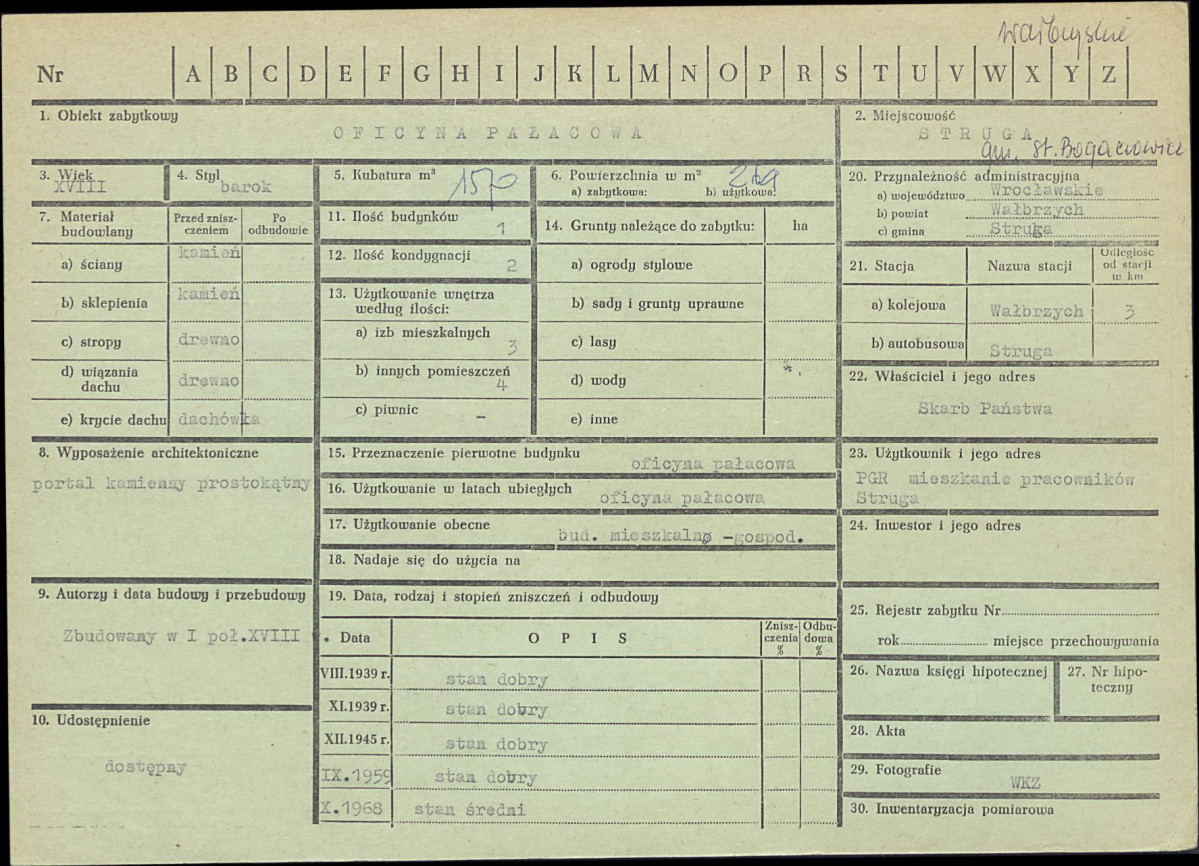 Nr A B C D E F G H I J K L M N O P R S T U V W X Y Z
1. Obiekt zabytkowy
OFICYNA PAŁACOWA
2. Miejscowość
STRUGA
gm. St. Bogaczowice
3. Wiek
XVIII
4. Styl
barok
5. Kubatura m³ 1570
6. Powierzchnia w m²
a) zabytkowa: b) użytkowa:
20. Przynależność administracyjna
a) województwo Wrocławskie
b) powiat Wałbrzych
c) gmina Struga
7. Materiał budowlany
Przed zniszczeniem
Po odbudowie
a) ściany kamień
b) sklepienia kamień
c) stropy drewno
d) wiązania dachu drewno
e) krycie dachu dachówka
11. Ilość budynków 1
12. Ilość kondygnacji 2
13. Użytkowanie wnętrza
według ilości:
a) izb mieszkalnych 3
b) innych pomieszczeń 4
c) piwnic –
14. Grunty należące do zabytku: ha
a) ogrody stylowe
b) sady i grunty uprawne
c) lasy
d) wody
e) inne
21. Stacja Nazwa stacji
Odległość
od stacji
w km
a) kolejowa Wałbrzych 3
b) autobusowa Struga
22. Właściciel i jego adres
Skarb Państwa
8. Wyposażenie architektoniczne
portal kamienny prostokątny
15. Przeznaczenie pierwotne budynku
oficyna pałacowa
16. Użytkowanie w latach ubiegłych
oficyna pałacowa
17. Użytkowanie obecne
bud. mieszkalno -gospod.
18. Nadaje się do użycia na
23. Użytkownik i jego adres
PGR mieszkanie pracowników
Struga
24. Inwestor i jego adres
9. Autorzy i data budowy i przebudowy
Zbudowany w I poł.XVIII w.
10. Udostępnienie
dostępny
19. Data, rodzaj i stopień zniszczeń i odbudowy
Data OPIS
Znisz-
czenia
%
Odbu-
dowa
%
VIII.1939 r. stan dobry
XI.1939 r. stan dobry
XII.1945 r. stan dobry
IX.1959 stan dobry
X.1968 stan średni
25. Rejestr zabytku Nr
rok miejsce przechowywania
26. Nazwa księgi hipotecznej
27. Nr hipo-
teczny
28. Akta
29. Fotografie
WKZ
30. Inwentaryzacja pomiarowa